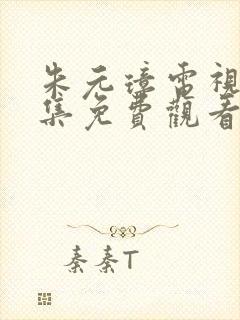 朱元璋電視
集免費觀看
秦秦T